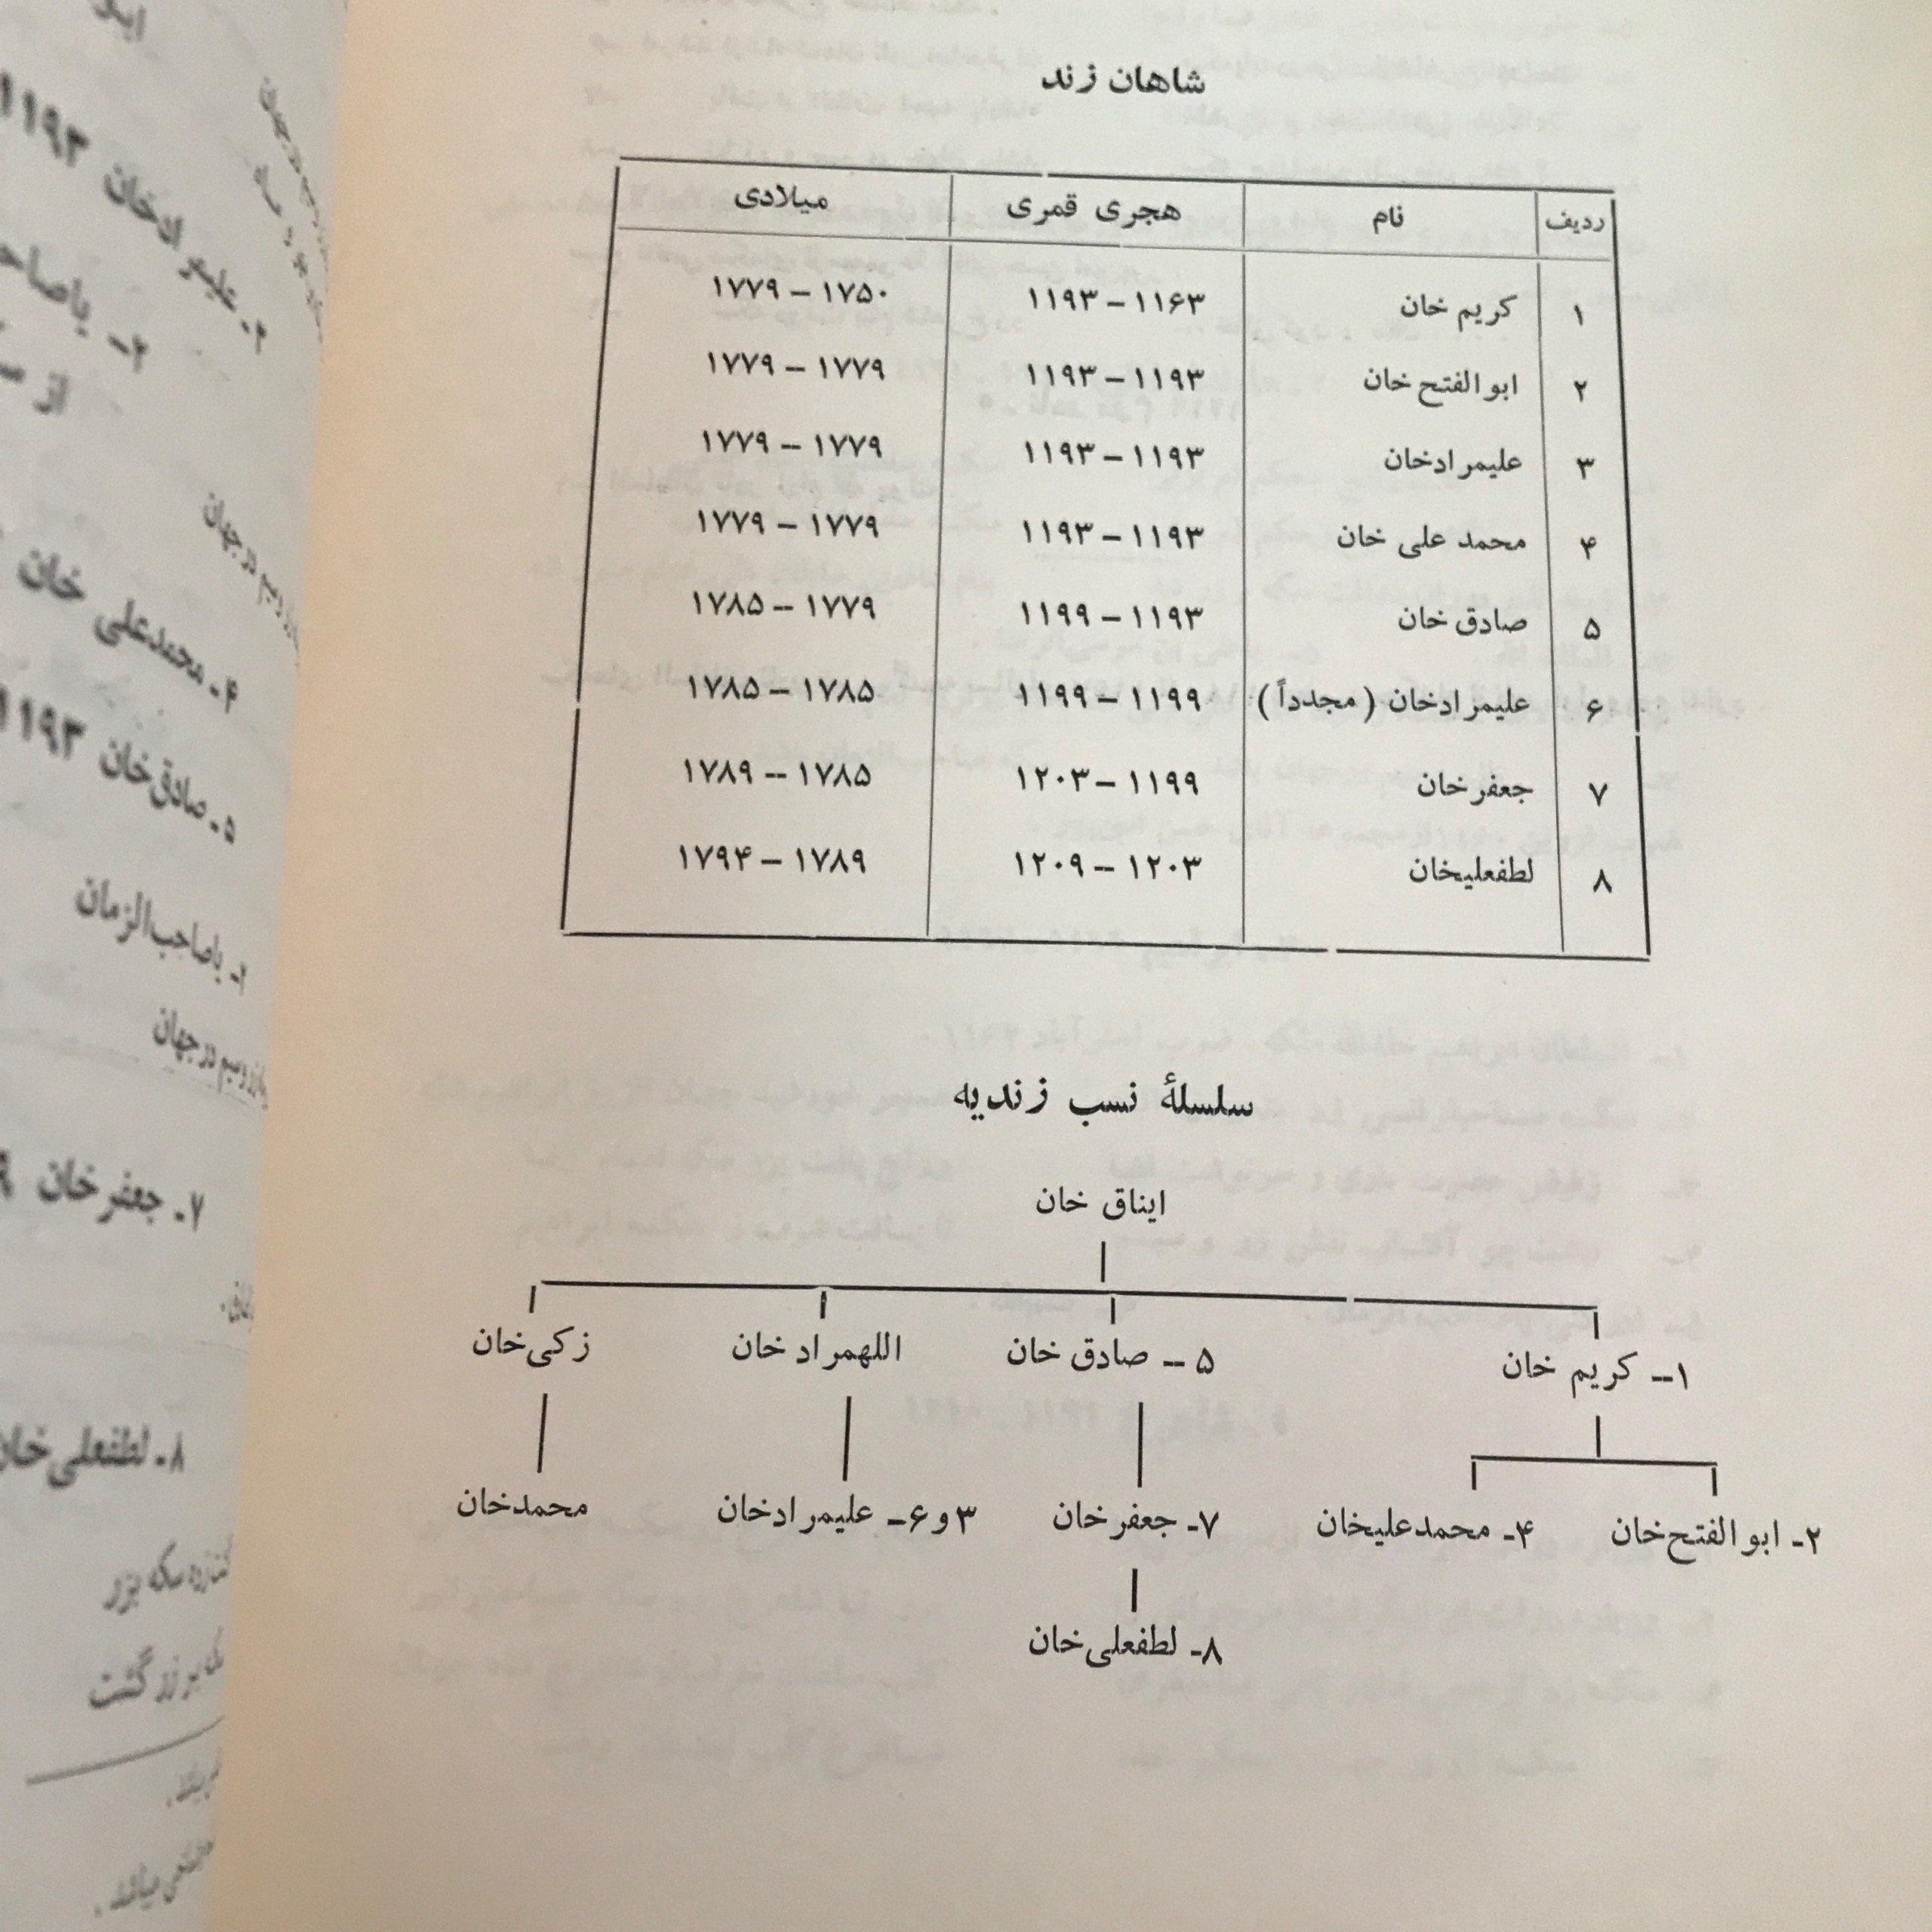 شاهان زند
ردیف نام هجری قمری میلادی
۱ کریم خان ۱۱۶۳ – ۱۱۹۳ ۱۷۵۰ – ۱۷۷۹
۲ ابوالفتح خان ۱۱۹۳ – ۱۱۹۳ ۱۷۷۹ – ۱۷۷۹
۳ علیمرادخان ۱۱۹۳ – ۱۱۹۳ ۱۷۷۹ – ۱۷۷۹
۴ محمد علی خان ۱۱۹۳ – ۱۱۹۳ ۱۷۷۹ – ۱۷۷۹
۵ صادق خان ۱۱۹۳ – ۱۱۹۹ ۱۷۷۹ – ۱۷۸۵
۶ علیمرادخان (مجدداً) ۱۱۹۹ – ۱۱۹۹ ۱۷۸۵ – ۱۷۸۵
۷ جعفرخان ۱۱۹۹ – ۱۲۰۳ ۱۷۸۵ – ۱۷۸۹
۸ لطفعلیخان ۱۲۰۳ – ۱۲۰۹ ۱۷۸۹ – ۱۷۹۴
سلسلهٔ نسب زندیه
ایناق خان
۱– کریم خان ۵ – صادق خان اللهمراد خان زکی‌خان
۲- ابوالفتح‌خان ۴- محمدعلیخان ۷- جعفرخان ۳ و ۶- علیمرادخان محمدخان
۸- لطفعلی‌خان
۲- علیمرادخان ۱۱۹۳
۲- یاصاح
از
در جهان
۴- محمدعلی خان
۵- صادق‌خان ۱۱۹۳
۱- یاصاحب‌الزمان
در جهان
۷- جعفرخان ۹
۸- لطفعلی‌خان
سکه بزر
بر زر گشت
میباشد.